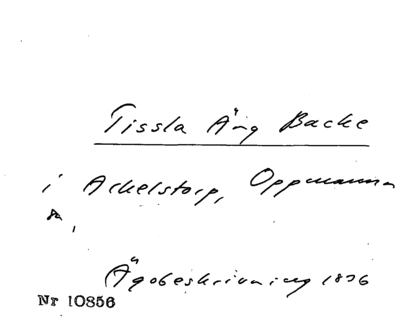 Tissla Äng Backe
i Ackelstorp, Oppmanna
sn,
Ägobeskrivning 1826
Nr 10856